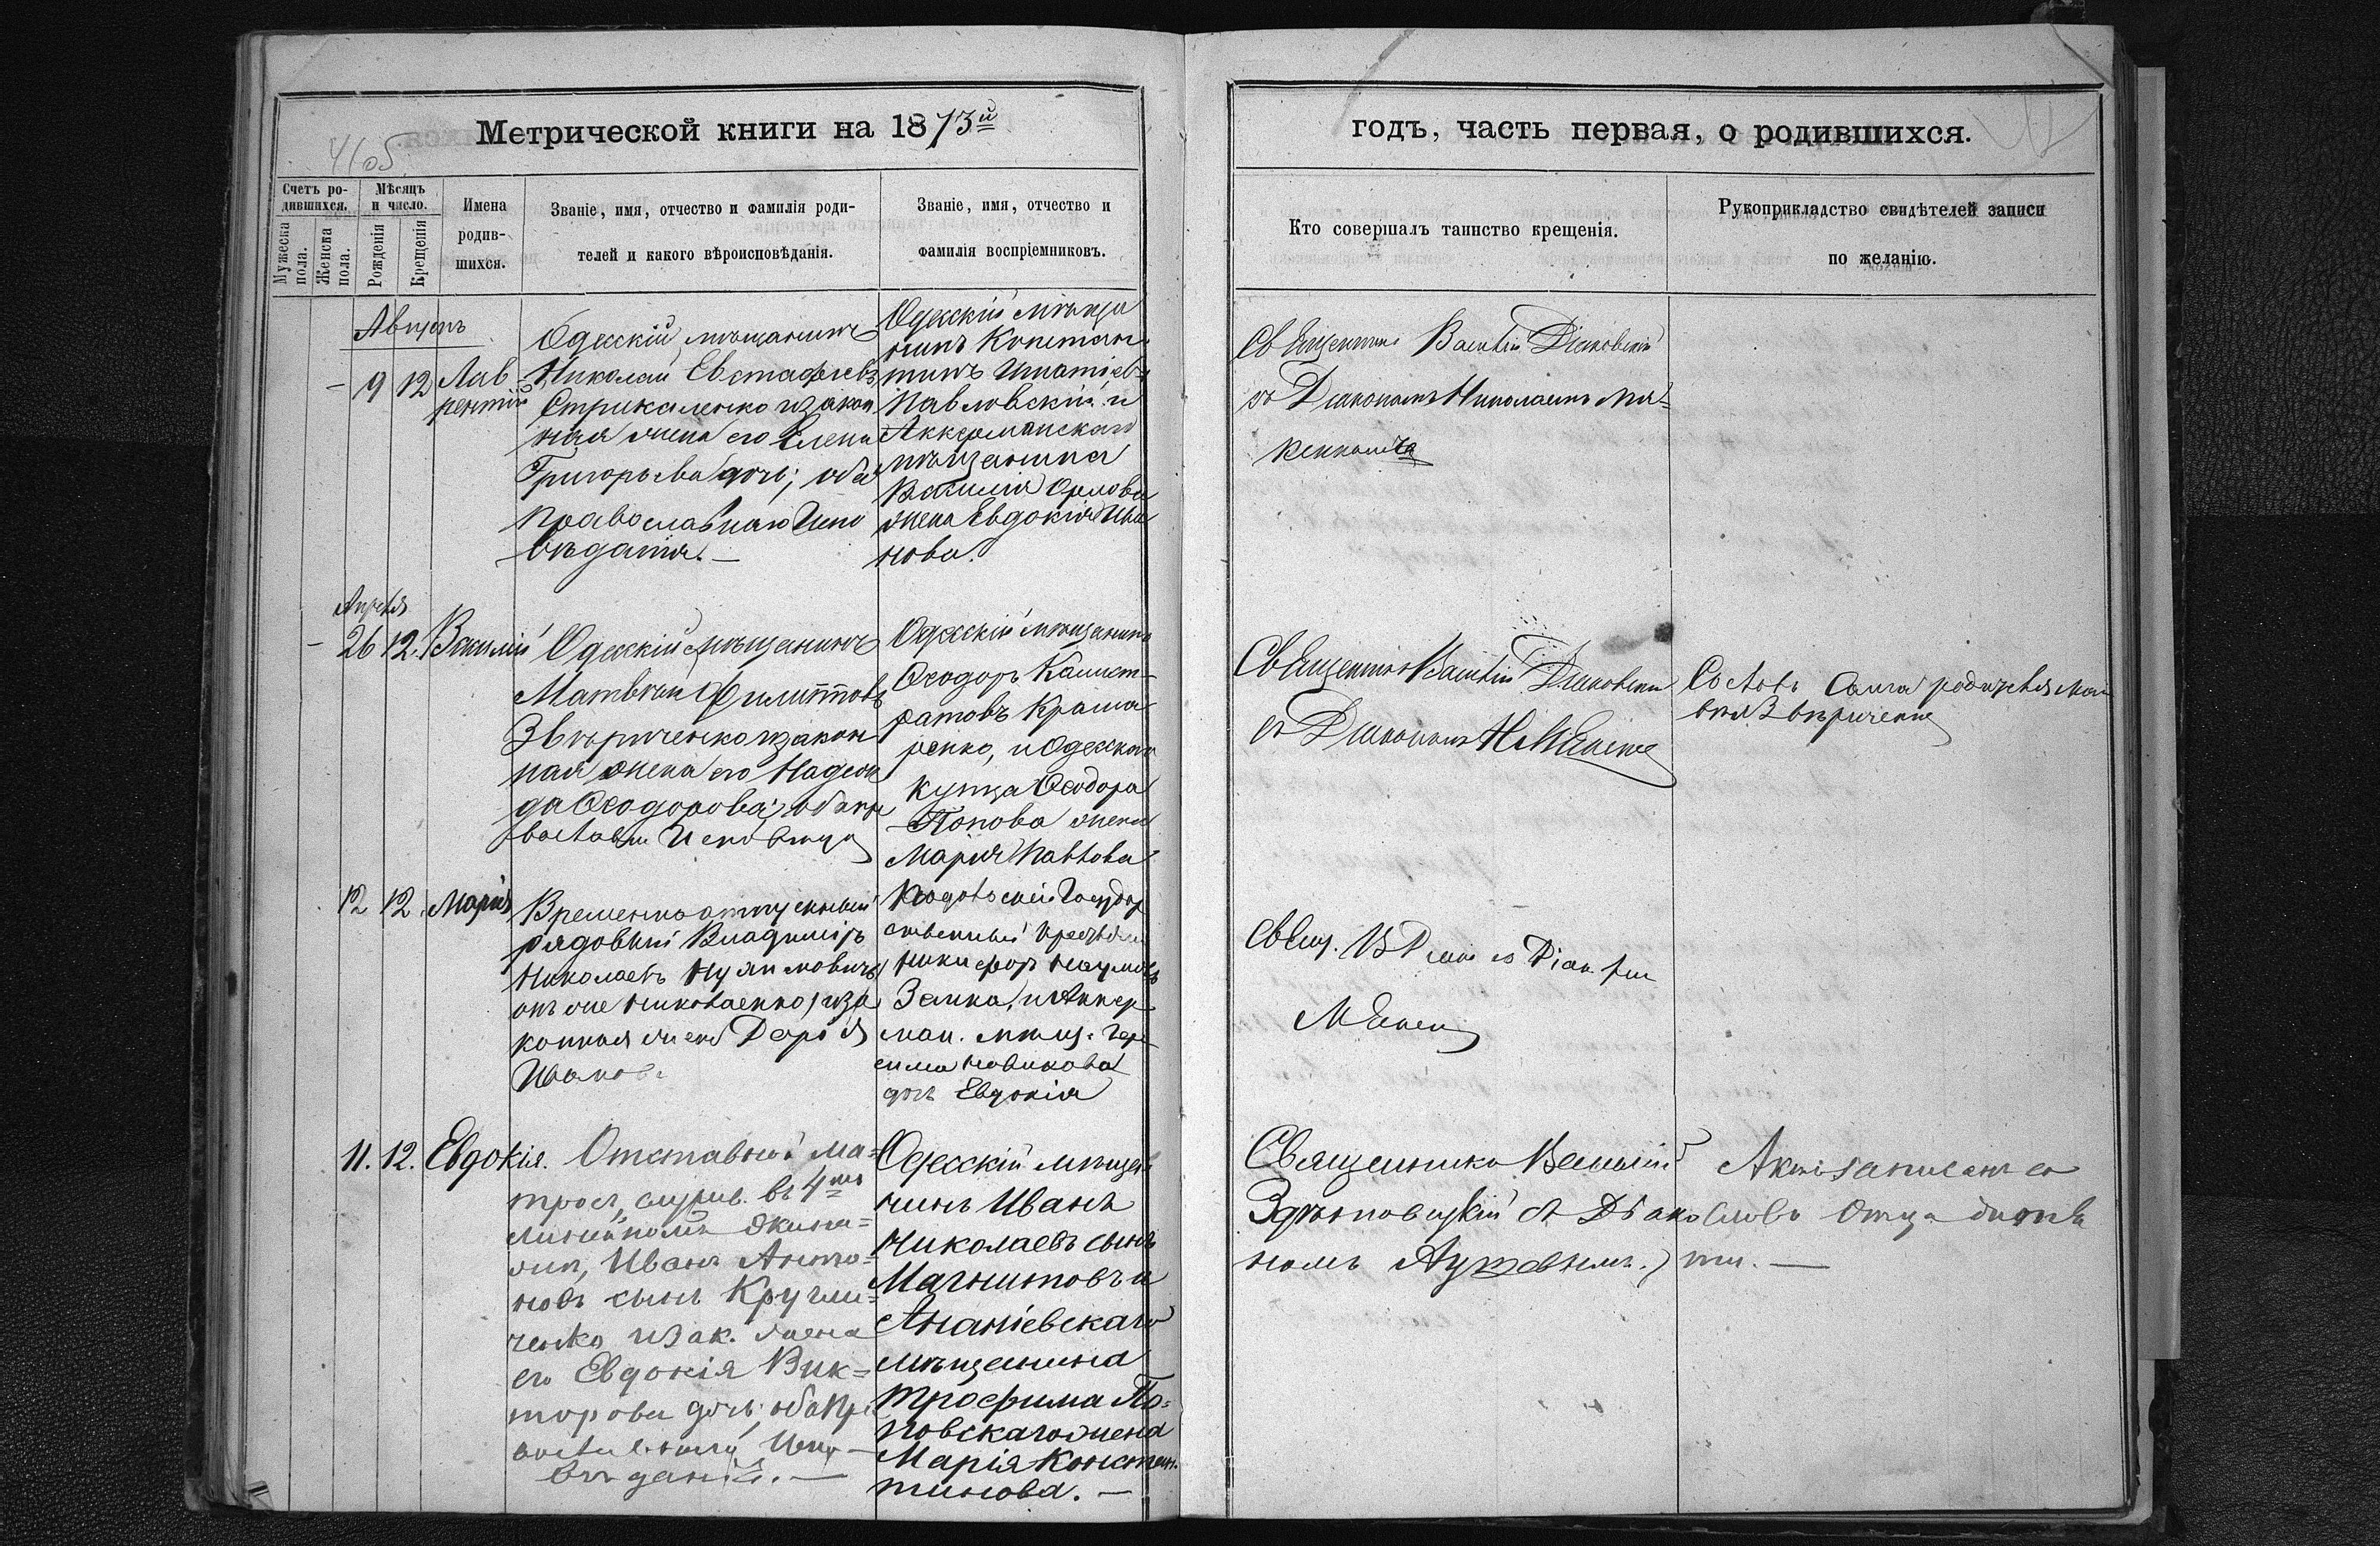 Метрической книги на 1873й
годъ, часть первая, о родившихся.
Счетъ ро-
дившихся.
Мѣсяцъ
и число.
Мужеска
пола.
Женска
пола.
Рожденія
Крещенія
Имена
родив-
шихся.
Званіе, имя, отчество и фамилія роди-
телей и какого вѣроисповѣданія.
Званіе, имя, отчество и
фамилія воспріемниковъ.
Кто совершалъ таинство крещенія.
Рукоприкладство свидѣтелей записи
по желанію.
Августъ
9 12 Лав-
рентій
Одесскій мѣщанинъ
Николай Евстафіевъ
Стрикаленко и закон
ная жена его Елена
Григорьева дочь; оба
православнаго Испо
вѣданія.—
Одесскій мѣща
нинъ Констан-
тинъ Игнатіев
Павловскій и
Аккерманскаго
мѣщанина
Василія Орлова
жена Евдокія Ива
нова.
Священникъ Василій
съ Діакономъ Николаемъ
Апрѣля
26 12. Василій
Одесскій мѣщанинъ
Матвѣй Филипповъ
Звѣриченко и закон
ная жена его Надеж
да Ѳеодорова; оба
Одесскій мѣщанинъ
Ѳеодоръ Калист-
ратовъ Крама
ренко, и Одесскаго
купца Ѳеодора
Попова жена
Марія Павлова
Священникъ Василій
съ Діакономъ
Со словъ самаго родителя Мат
вѣя Звѣриченко
12 12. Марія
Временно отпускный
рядовый Владиміръ
Николаевъ
онъ же Николаенко) и за
конная жена Дарія
Иванова
государ
ственный крестьян
Никифоръ Наумовъ
Заика, и Аккер
ман. мѣщ. Гера
сима Новикова
дочь Евдокія
Свящ.
11. 12. Евдокія.
Отставной ма-
тросъ, служив. въ 4мъ
экипа-
жѣ, Иванъ Анто-
новъ сынъ Кругли-
ченко и зак. жена
его Евдокія Вик-
торова дочь; оба пра
вославнаго Испо-
вѣданія.—
Одесскій мѣща
нинъ Иванъ
Николаевъ сынъ
Магнитовъ и
Ананіевскаго
мѣщанина
Трофима По-
повскаго жена
Марія Констан.
тинова.—
Священникъ Василій
Здѣтновицкій съ Діако
номъ
Актъ записанъ со
словъ Отца дитя
ти.—